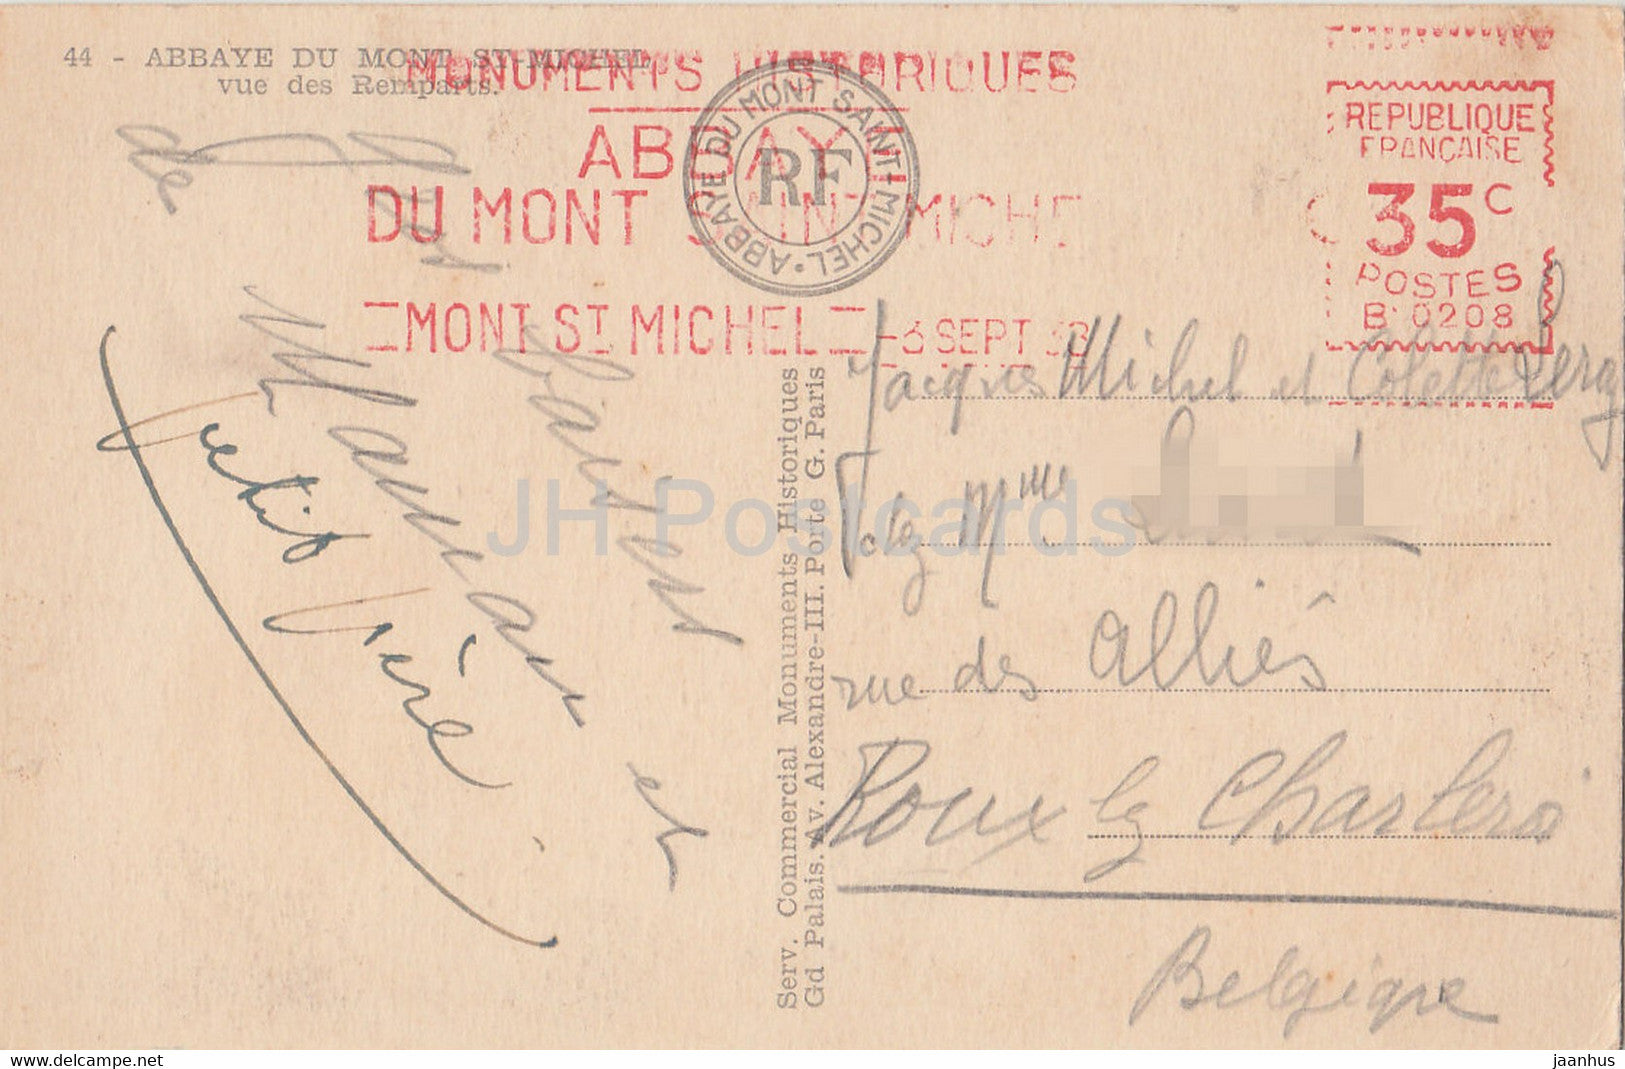 44 - ABBAYE DU MONT ST-MICHEL
vue des Remparts.
MONUMENTS HISTORIQUES
ABBAYE
DU MONT SAINT MICHE
MONT ST MICHEL
-3 SEPT 38
ABBAYE DU MONT SAINT-MICHEL
RF
REPUBLIQUE
FRANÇAISE
35 C
POSTES
B 0208
de
Maman et
Petit Père
Serv. Commercial Monuments Historiques
Gd Palais. Av. Alexandre-III. Porte G. Paris
Jacques Michel et Colette
Chez Mme
rue des Alliés
Roux lez Charleroi
Belgique
JH Postcards
delcampe.net
jaanhus